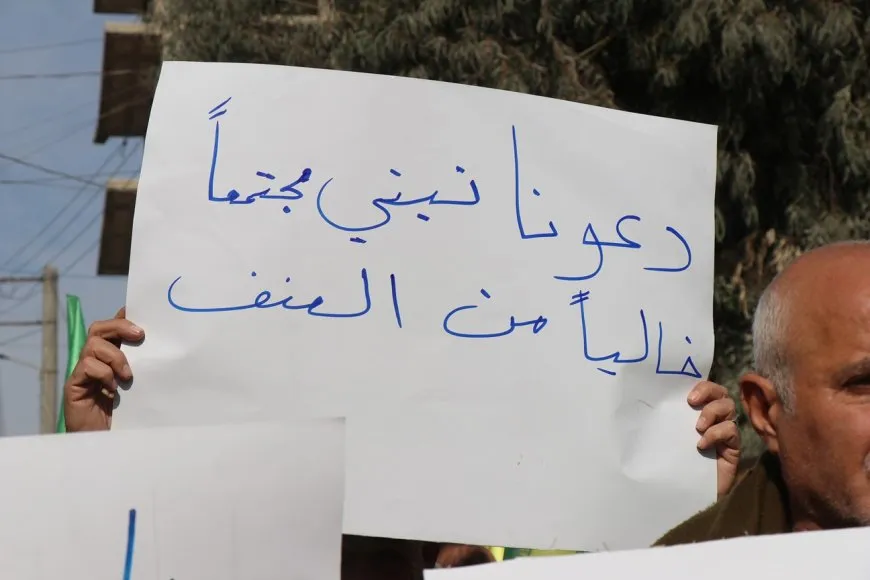 دعونا نبني مجتمعاً
خالياً من العنف